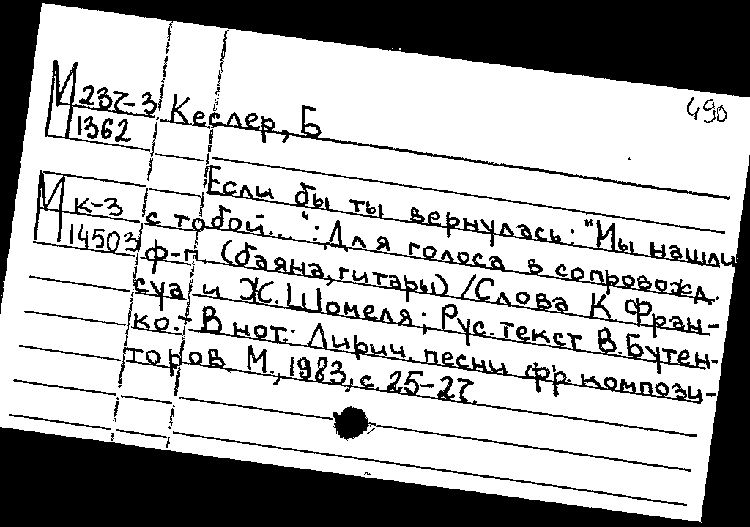 490
М 237-3 Кеслер, Б
1362
Если бы ты вернулась: "Мы нашли
М к-3 с тобой...": Для голоса в сопровожд.
14503 ф-п. (баяна, гитары) / Слова К Фран-
суа и Ж. Шомеля; Рус. текст В. Бутен-
ко.- В нот.: Лирич. песни фр. компози-
торов. М., 1983, с. 25-27.